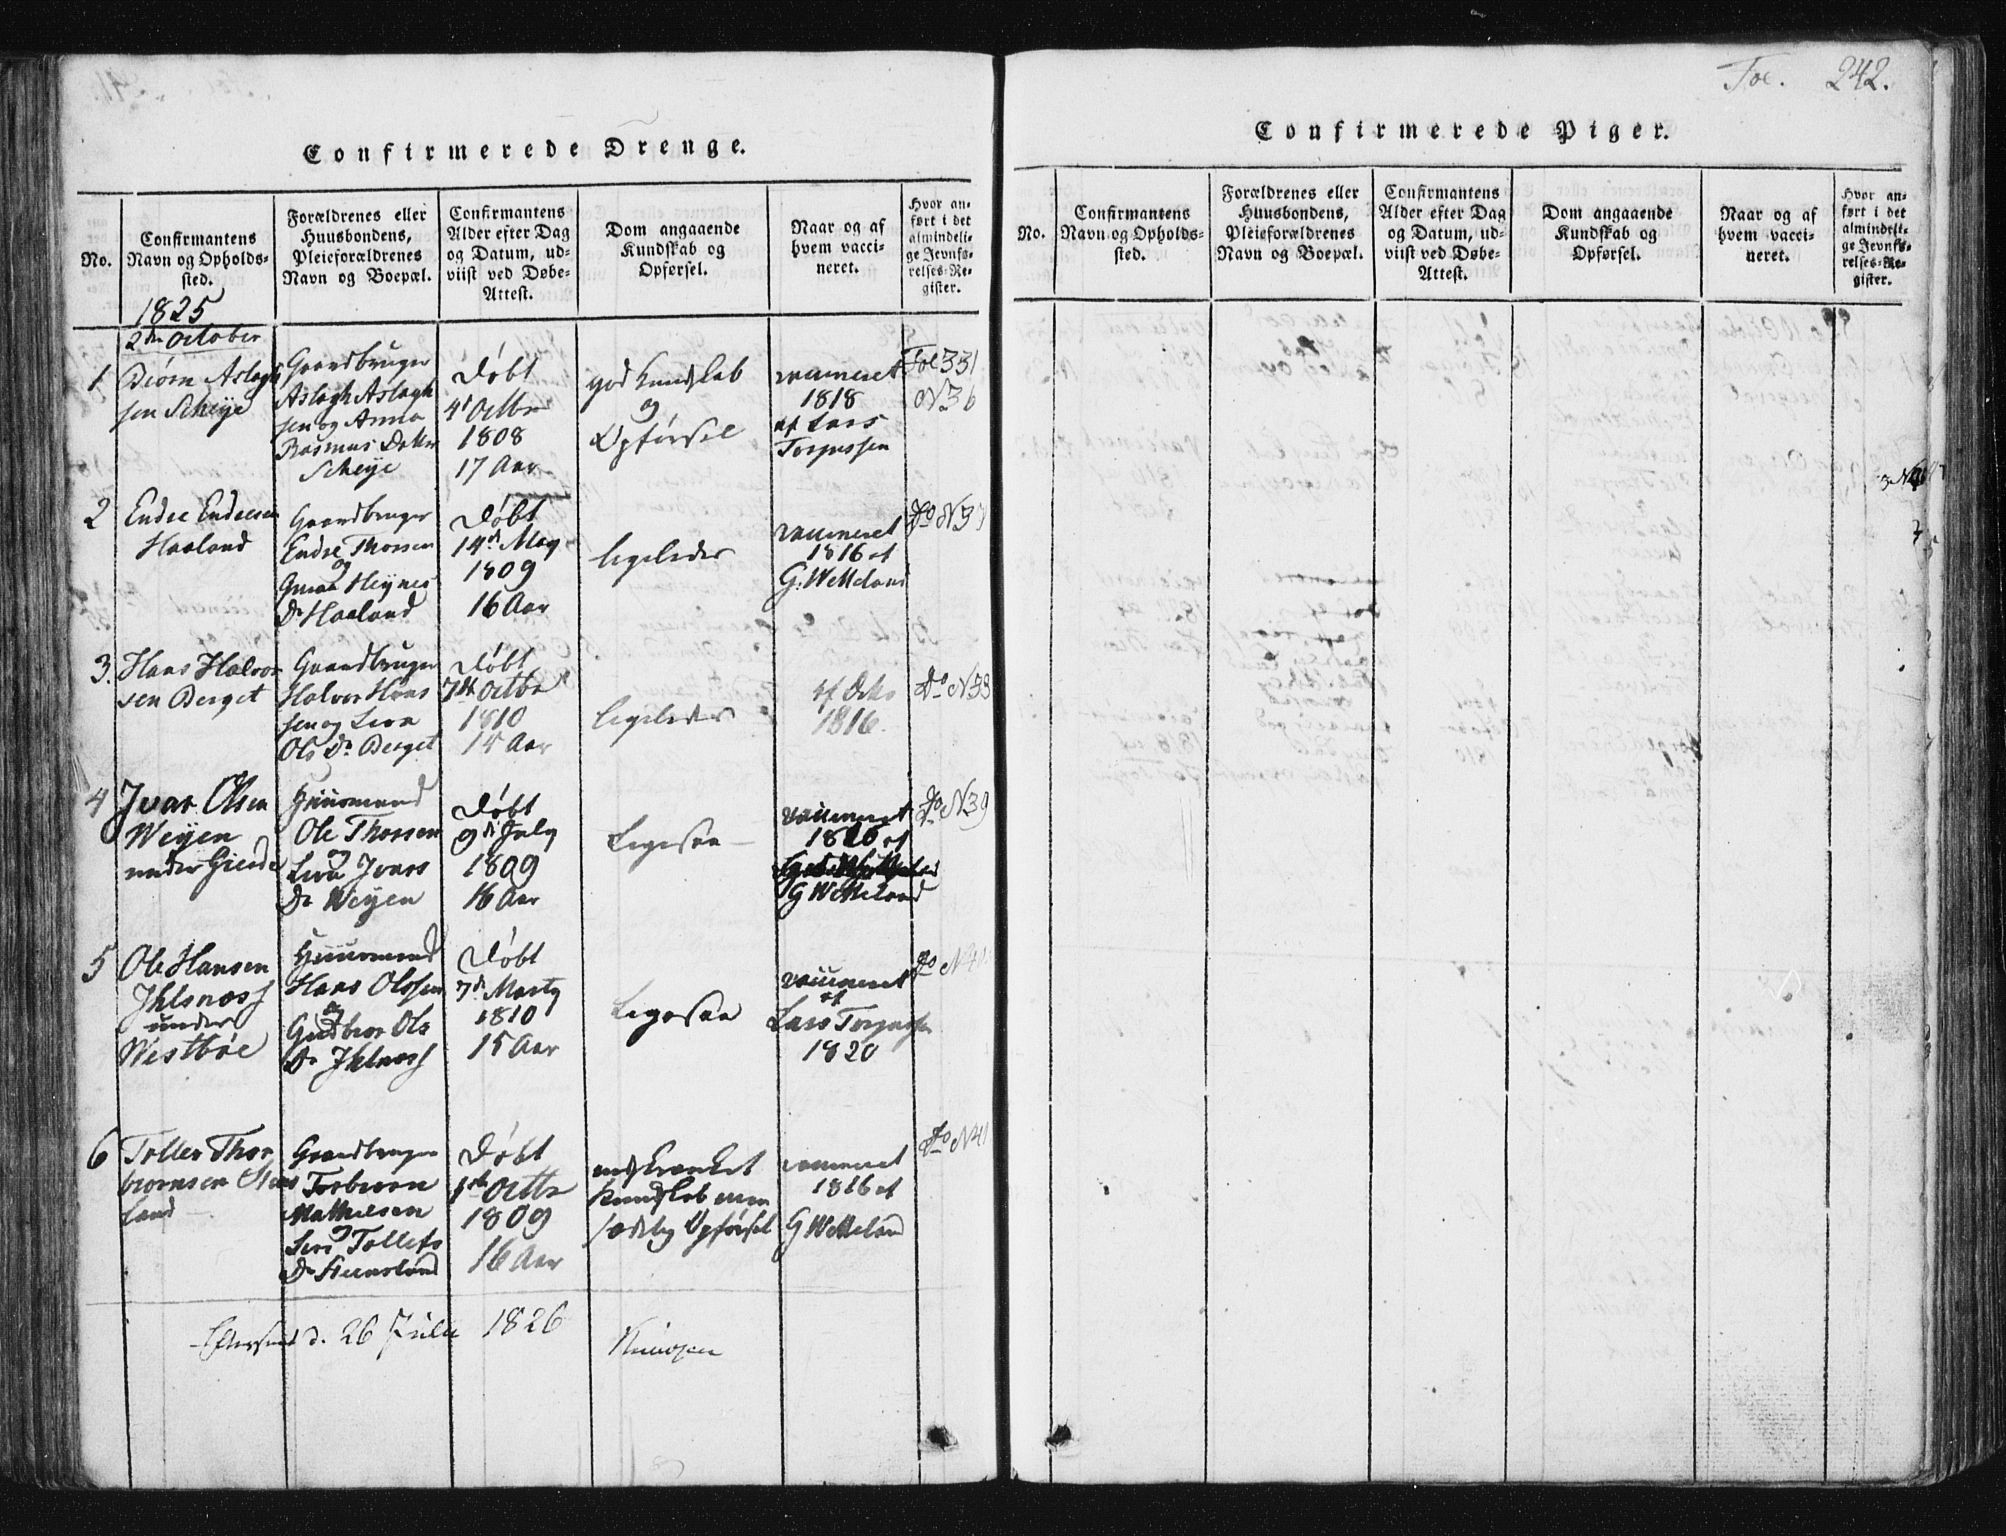 Confirmerede Drenge.
No.
Confirmantens
Navn og Opholds-
sted.
Forældrenes eller
Huusbondens,
Pleieforældrenes
Navn og Boepæl.
Confirmantens
Alder efter Dag
og Datum, ud-
viist ved Døbe-
Attest.
Dom angaaende
Kundskab og
Opførsel.
Naar og af
hvem vacci-
neret.
Hvor an-
ført i det
almindeli-
ge Jevnfø-
relses-Re-
gister.
1825
2den October
1
Biørn Aslagh
sen Scheije
Gaardbruger
Aslagh Aslagh
sen og Anna
Rasmus Datter
Scheije
Døbt
4de Octbr
1808
17 Aar
god Kundskab
og
Opførsel
vaccineret
1818
af Lars
Torgussen
Fol 331
N36
2
Endre Endresen
Haaland
Gaardbruger
Endre Thorsen
og
Heynes
Dr Haaland
Døbt
14de May
1809
16 Aar
ligeledes
vaccineret
1816 af
G. Wetteland
Do N37
3.
Hans Halvor
sen Berget
Gaardbruger
Halvor Hans
sen og Siva
Ols Dr Berget
Døbt
7de Octbr
1810
15 Aar
ligeledes
af Do
1816.
Do N38
4
Ivar Olsen
Weijen
under Gierde
Huusmand
Ole Thorsen
og
Siva Ivars
Dr Weijen
Døbt
9de July
1809
16 Aar
Ligesaa
vaccineret
1816 af
G Wetteland
Do N39
5
Ole Hansen
Ihlsnæss
under
Westbøe
Huusmand
Hans Olssen
og
Gudbior Ols
Dr Ihlnæss
Døbt
7de Marty
1810
15 Aar
Ligesaa
vaccineret
af
Lars Torgussen
1820
Do N40
6
Tollev Thor
biørnsen Steens
land
Gaardbruger
Torbiørn
Mathiesen
og
Siri Tollefs
Dr Steensland
Døbt
1ste Octbr
1809
16 Aar
indskrænket
Kundskab men
sædelig Opførsel
vaccineret
1816 af
G Wetteland
Do N41
Efterseet d. 26 Julii 1826
Confirmerede Piger.
Fol. 242.
No.
Confirmantens
Navn og Opholds-
sted.
Forældrenes eller
Huusbondens,
Pleieforældrenes
Navn og Boepæl.
Confirmantens
Alder efter Dag
og Datum, ud-
viist ved Døbe-
Attest.
Dom angaaende
Kundskab og
Opførsel.
Naar og af
hvem vacci-
neret.
Hvor an-
ført i det
almindeli-
ge Jevnfø-
relses-Re-
gister.